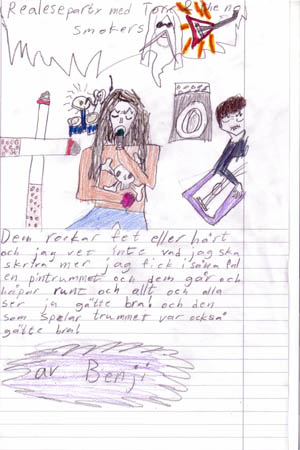 Realeseparty med Tore & the ng
smokers
Dem rockar fet eller hårt
och jag vet inte vad jag ska
skriva mer jag fick i såna fal
en pintrummet och dem går och
hopar runt och allt och alla
ser ja gätte bra! och den
som spelar trummet var också
gätte bra!
av Benji